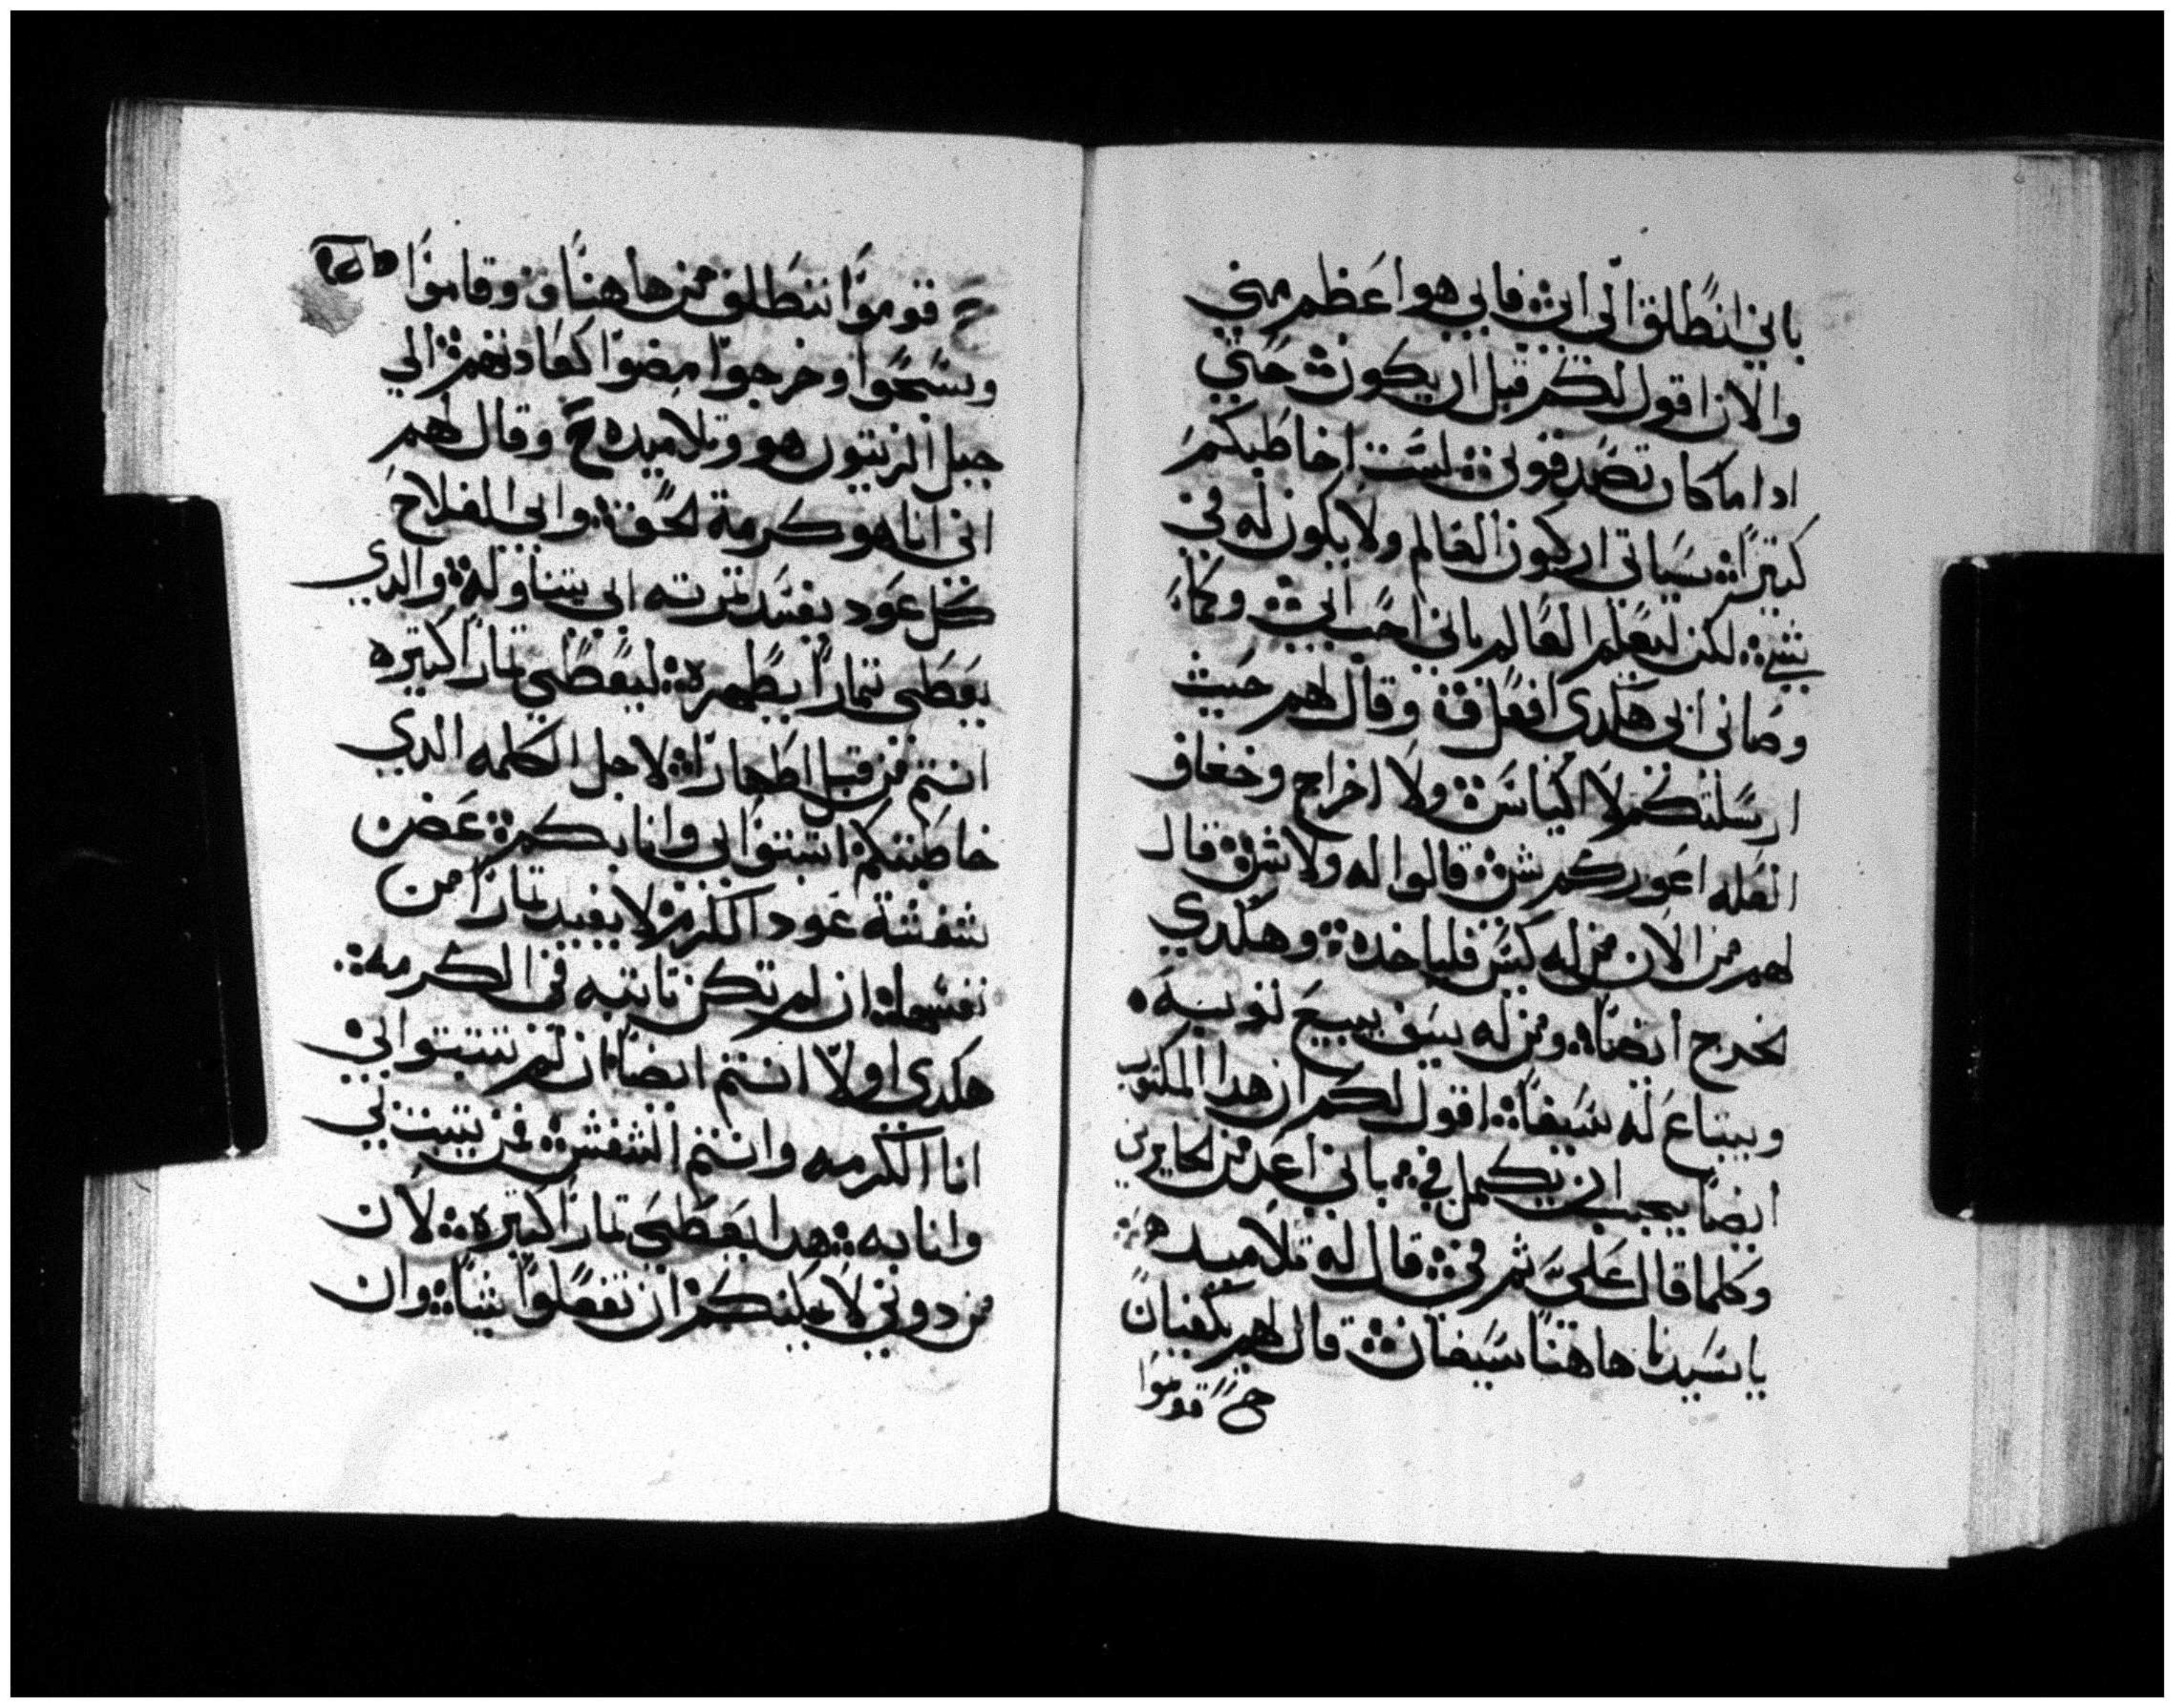 باني انطلق الى ابي فابي هو اعظم مني
والان اقول لكم قبل ان يكون حتي
ادا ما كان تصدقوني لست اخاطبكم
كتيرا سياتي اركون العالم ولا يكون له في
شي لكن ليعلم العالم باني احب ابي وكما
وصاني ابي هكدي افعل ق وقال لهم حيث
ارسلتكم بلا اكياس ولا اخراج وخفاف
انعله اعوزكم شي قالوا له ولا شي قال
لهم من الان من له كيس فلياخده وهكدي
لخرج ايضا ومن له سيف يبيع توبيه
ويبتاع له سيفا اقول لكم ان هدا المكتوب
ايضا يجب ان يكمل في باني اعد من الجايرين
وكلما قال علي تم في قال له تلاميده
يا سيدنا هاهنا سيفان قال لهم يكفيان
ح قوموا
ح قوموا ننطلق من هاهنا ق وقاموا
وسبحوا وخرجوا مضوا كعادتهم الي
جبل الزيتون هو وتلاميده ح وقال لهم
اني انا هو كرمة الحق وابي الفلاح
كل عود يفسد تمرته ابي يتناوله والدي
يعطي تمارا يطهره ليعطي تمارا كتيره
انتم من قبل اطهارا لاجل الكلمه الدي
خاطبتكم اتبتوا بي وانا بكم غضن
شفشة عود الكرم لا يفيد تمارا من
نفسها ان لم تكن تابته في الكرمه
هكدي اولا انتم ايضا ان لم تتبتوا بي
انا الكرمه وانتم الشفش من يتبت بي
وانا به هدا يعطي تمارا كتيره لان
من دوني لا يمكنكم ان تفعلوا شيا وان